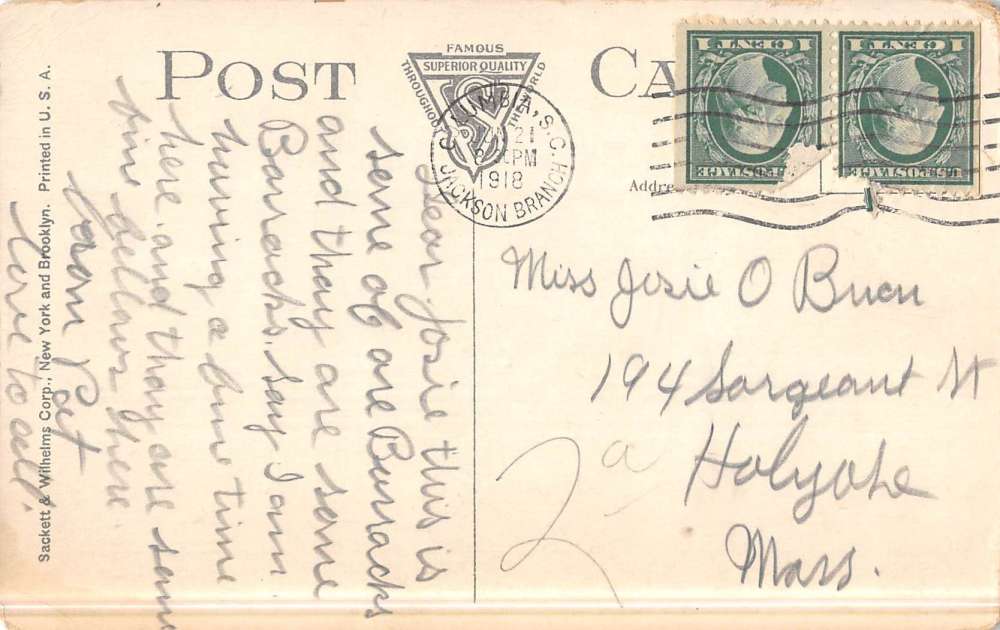 POST CA
FAMOUS
SUPERIOR QUALITY
THROUGHOUT THE WORLD
COLUMBIA, S.C.
21
PM
1918
JACKSON BRANCH
1 CENT 1
1 CENT 1
POSTAGE
U.S. POSTAGE
Addre
Sackett & Wilhelms Corp., New York and Brooklyn. Printed in U. S. A.
Dear Josie this is
some of are Burracks
and thay are some
Barracks. Say I am
having a fine time
here and thay are some
fine fellows there.
from Pat
Love to all.
Miss Josie O Brien
194 Sargeant St
Holyoke
Mass.
2 a